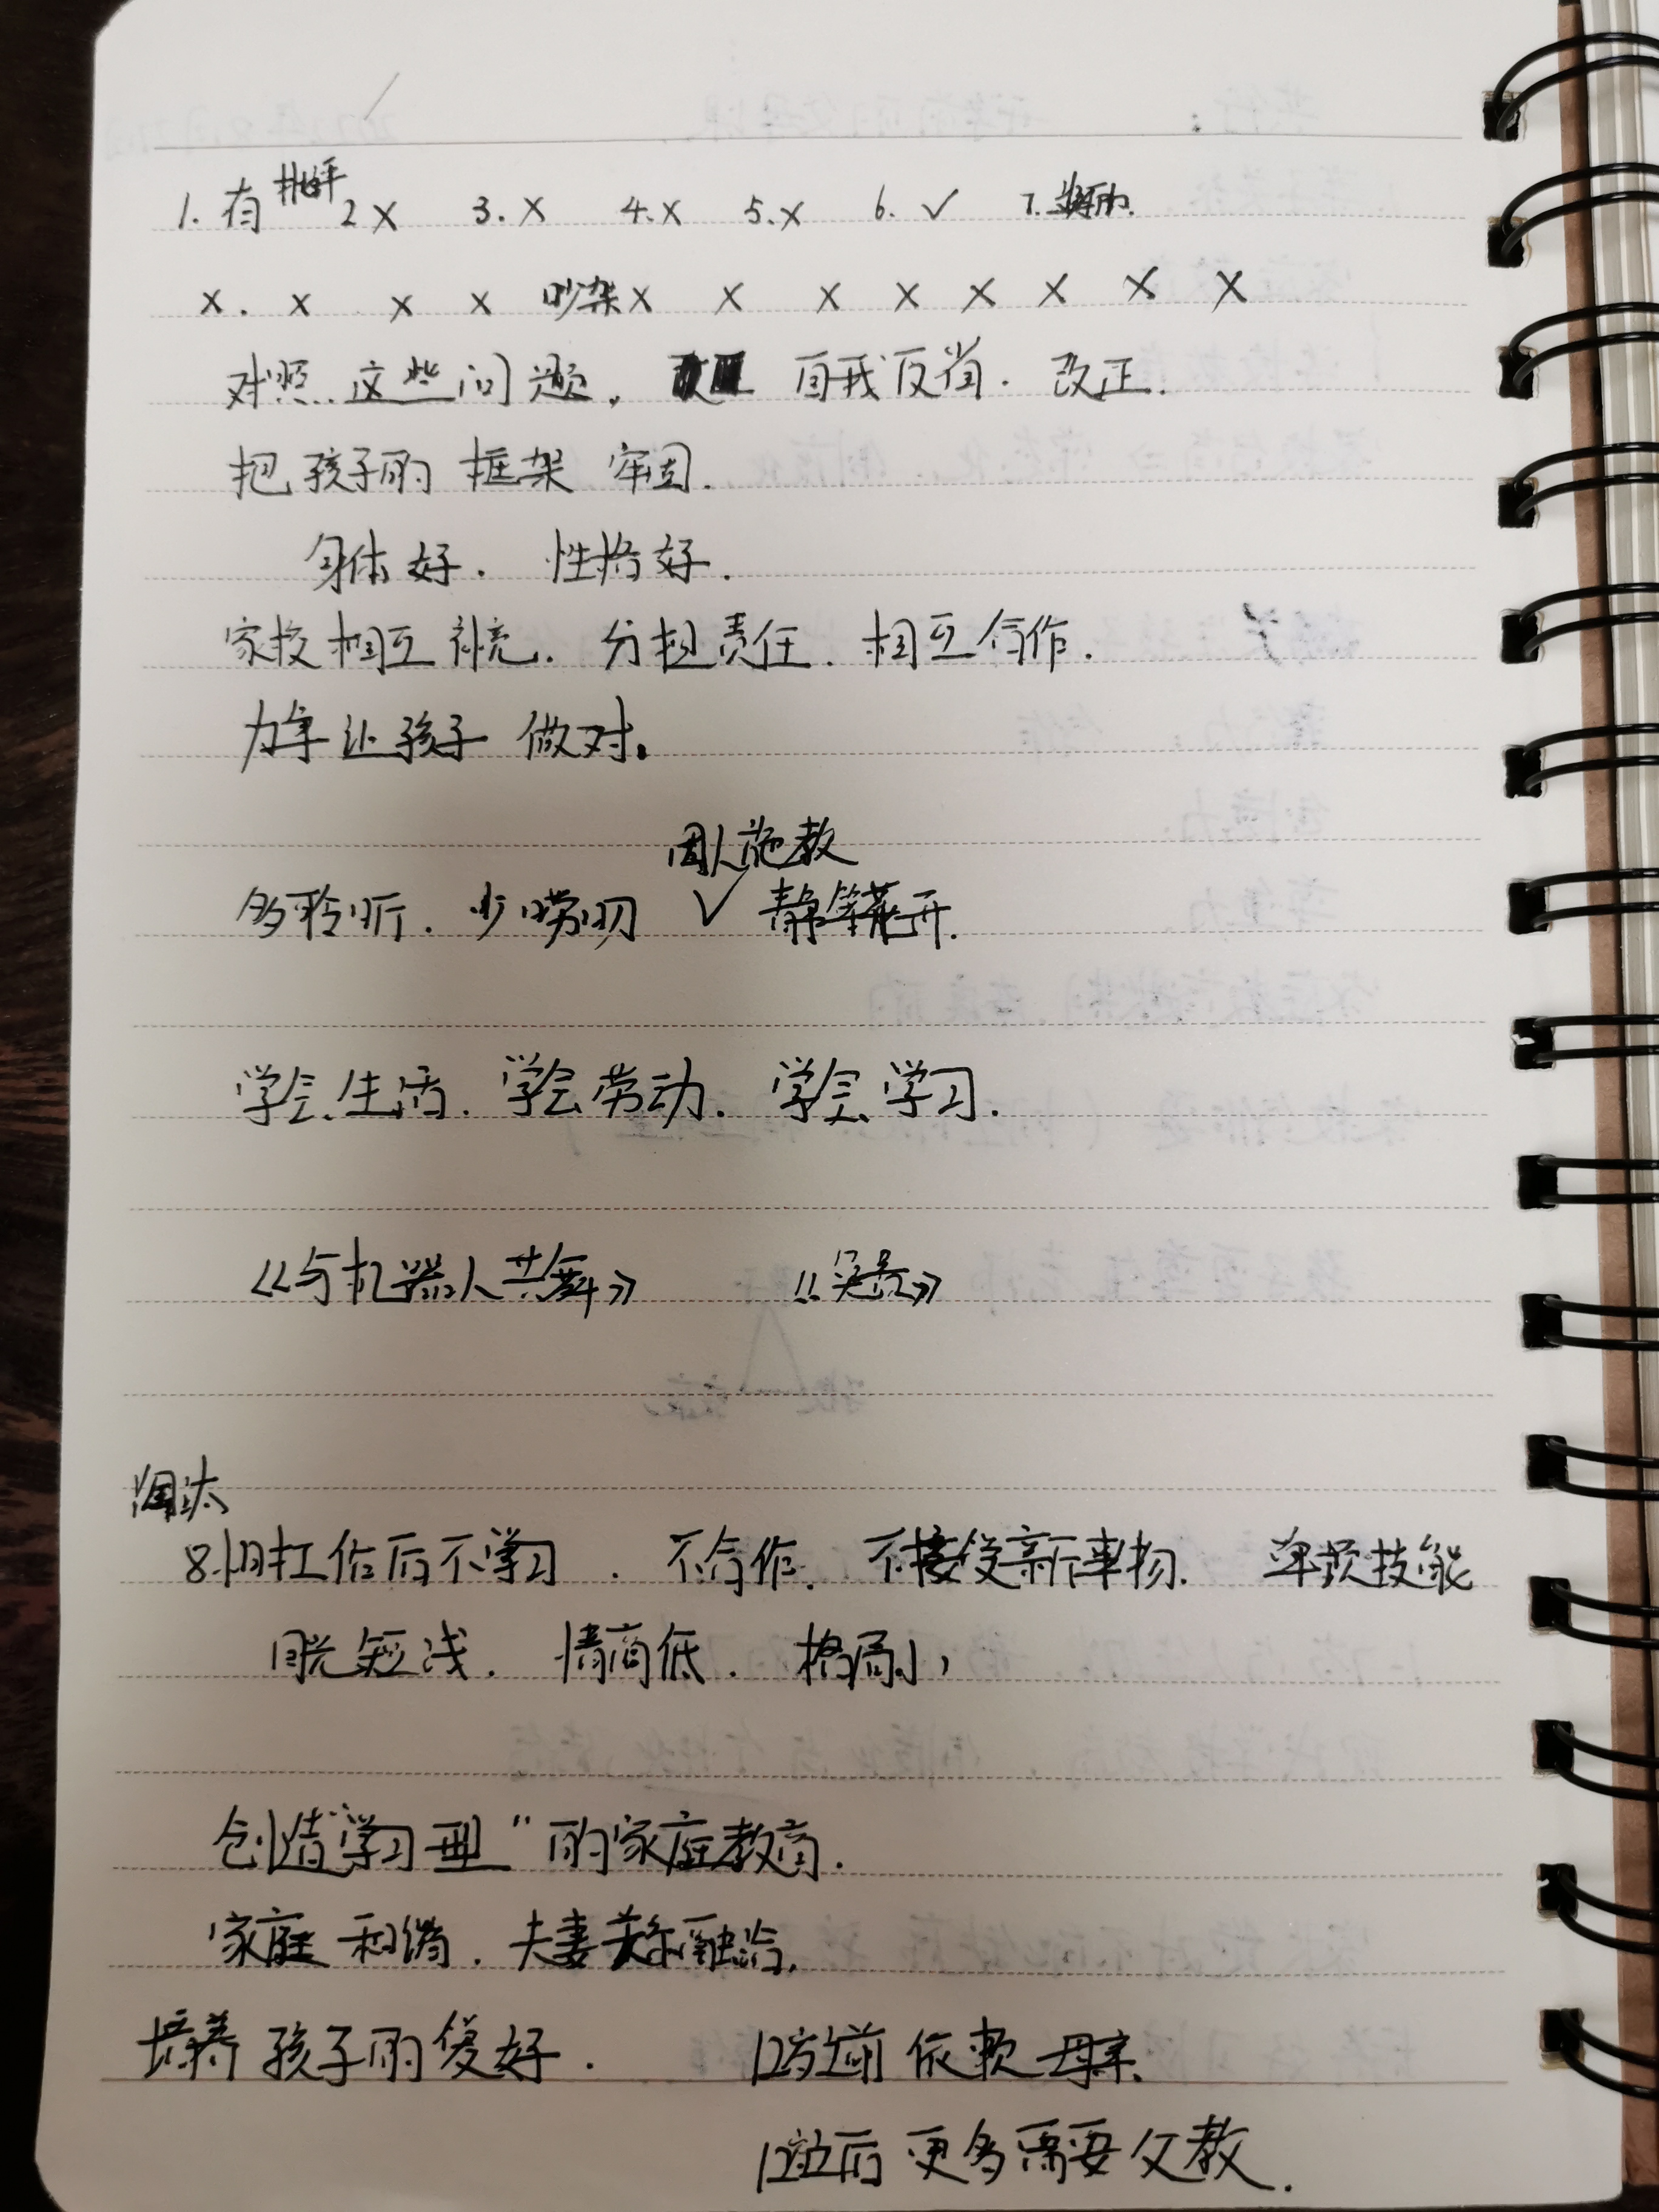 1. 有批评 2 × 3. × 4. × 5. × 6. ✓ 7. 奖励.
×. × × × 吵架 × × × × × × × ×
对照这些问题, 自我反省. 改正.
把孩子的 框架 牢固.
身体好. 性格好.
家校相互补充. 分担责任. 相互合作.
力争让孩子 做对.
因人施教
多聆听. 少唠叨 ✓ 静等花开.
学会生活. 学会劳动. 学会学习.
《与机器人共舞》
淘汰
8 后不学习. 不合作. 不接受新事物. 单项技能
目光短浅. 情商低. 格局小,
创造"学习型"的家庭教育.
家庭和谐. 夫妻关系融洽.
培养孩子的爱好. 12岁前 依赖母亲.
12岁后 更多需要父教.